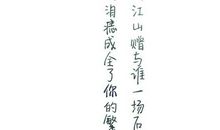 江山赠与谁一场
泪痣成全了你的繁